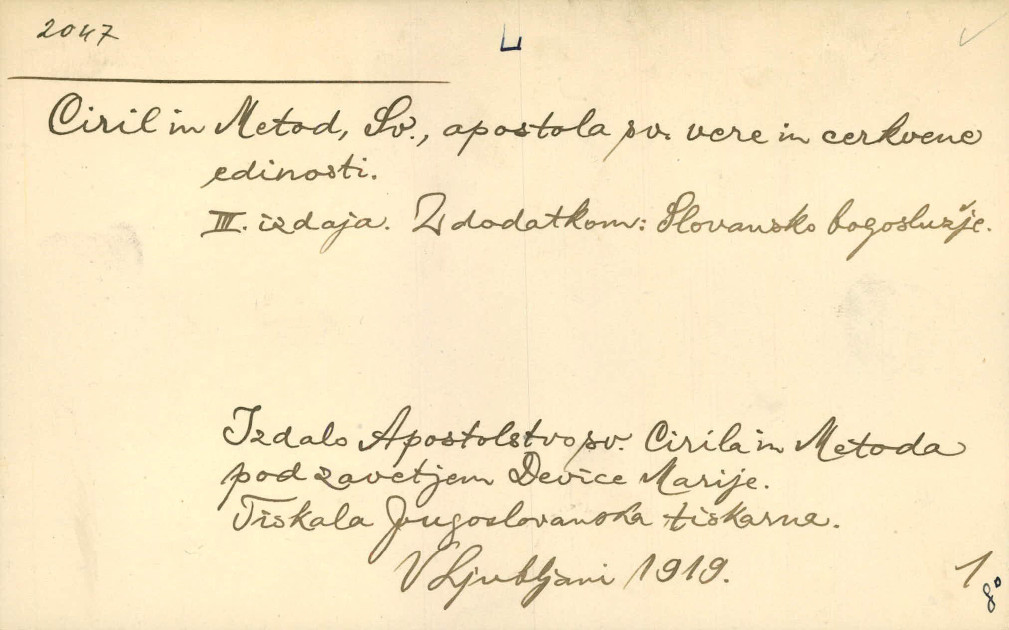 2047
L
Ciril in Metod, Sv., apostola sv. vere in cerkvene
edinosti.
III. izdaja. Z dodatkom: Slovansko bogoslužje.
Izdalo Apostolstvo sv. Cirila in Metoda
pod zavetjem Device Marije.
Tiskala Jugoslovanska tiskarna.
V Ljubljani 1919.
1
8°